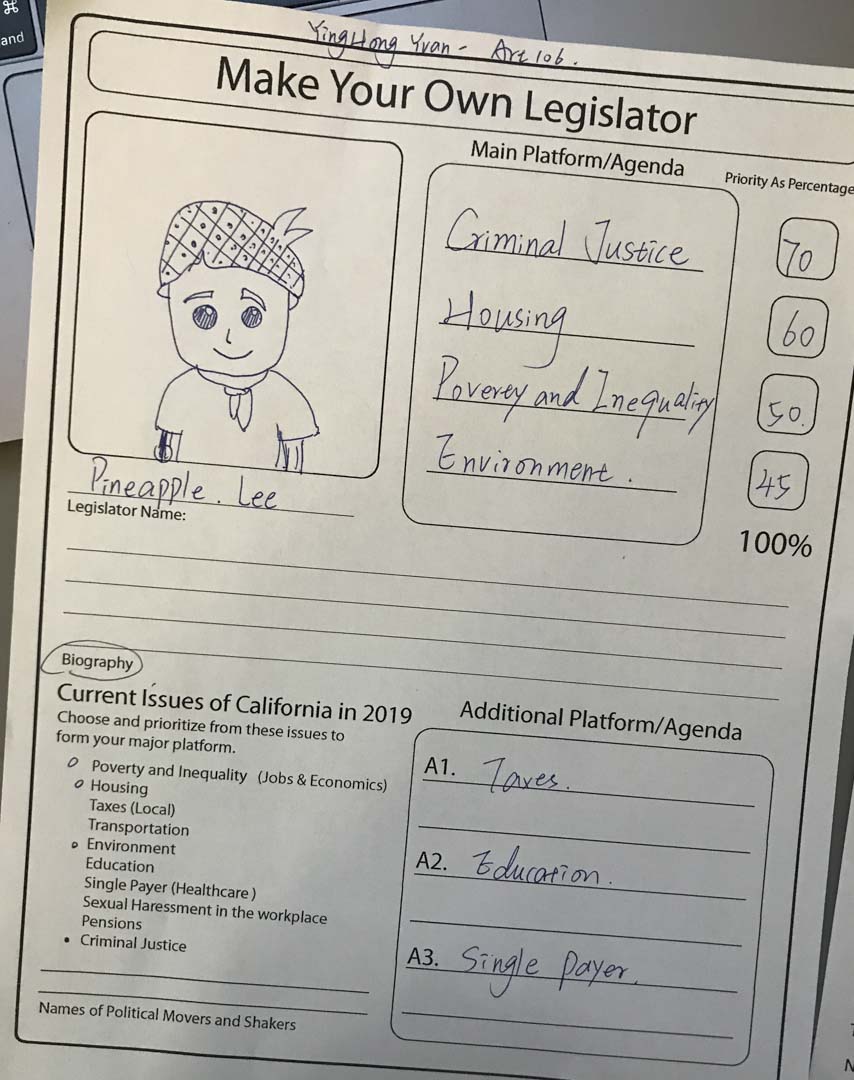 ⌘
and
YingHong Yuan - Art 106.
Make Your Own Legislator
Main Platform/Agenda
Priority As Percentage
Criminal Justice
70
Housing
60
Poverey and Inequality
50.
Environment.
45
100%
Pineapple. Lee
Legislator Name:
Biography
Current Issues of California in 2019
Choose and prioritize from these issues to
form your major platform.
Poverty and Inequality (Jobs & Economics)
Housing
Taxes (Local)
Transportation
Environment
Education
Single Payer (Healthcare )
Sexual Haressment in the workplace
Pensions
• Criminal Justice
Names of Political Movers and Shakers
Additional Platform/Agenda
A1. Taxes.
A2. Education.
A3. Single Payer.
N